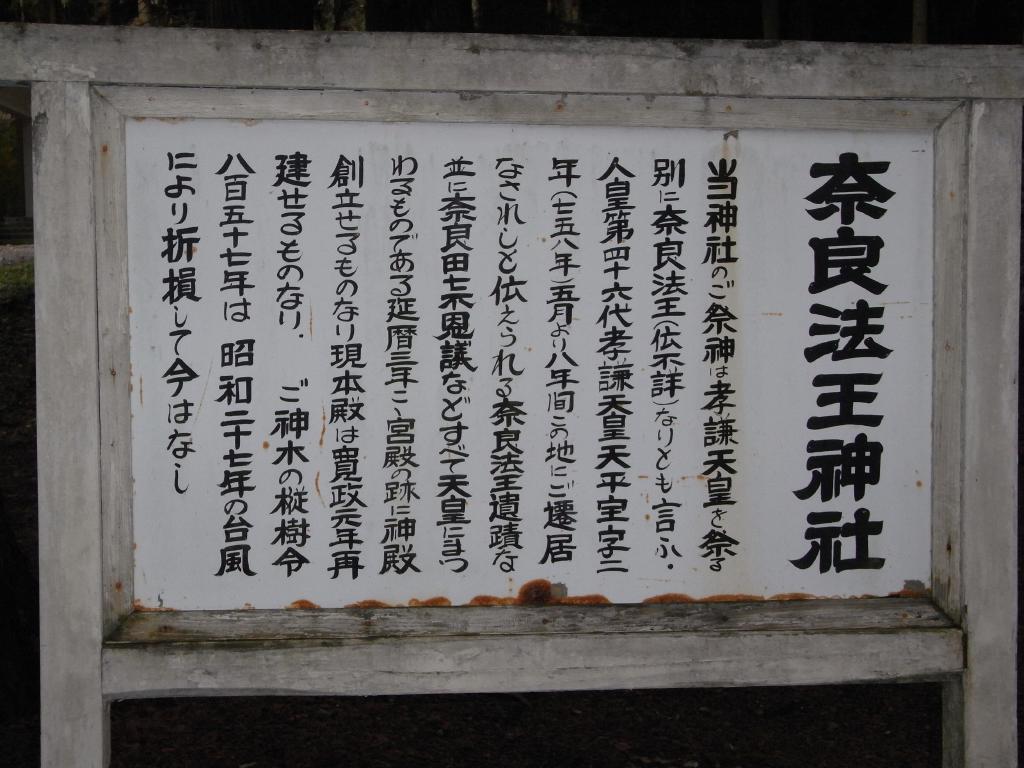 奈良法王神社
当神社のご祭神は孝謙天皇を祭る
別に奈良法王(伝不詳)なりとも言ふ・
人皇第四十六代孝謙天皇天平宝字二
年(七五八年)五月より八年间この地にご遷居
なされしと伝えられる奈良法王遺蹟な
並に奈良田七不思議などすべて天皇にまつ
わるものである延暦三年に宮殿の跡に神殿
創立せるものなり現本殿は寛政元年再
建せるものなり. ご神木の樅樹令
八百五十七年は 昭和二十七年の台風
により折損して今はなし